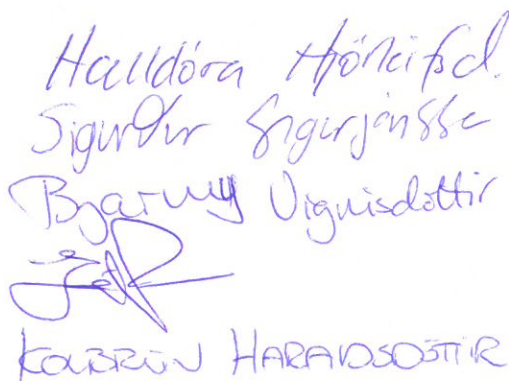 Halldóra Hjörleifsd.
Sigurður Sigurjónsson
Bjarney Vignisdóttir
KOLBRÚN HARALDSDÓTTIR